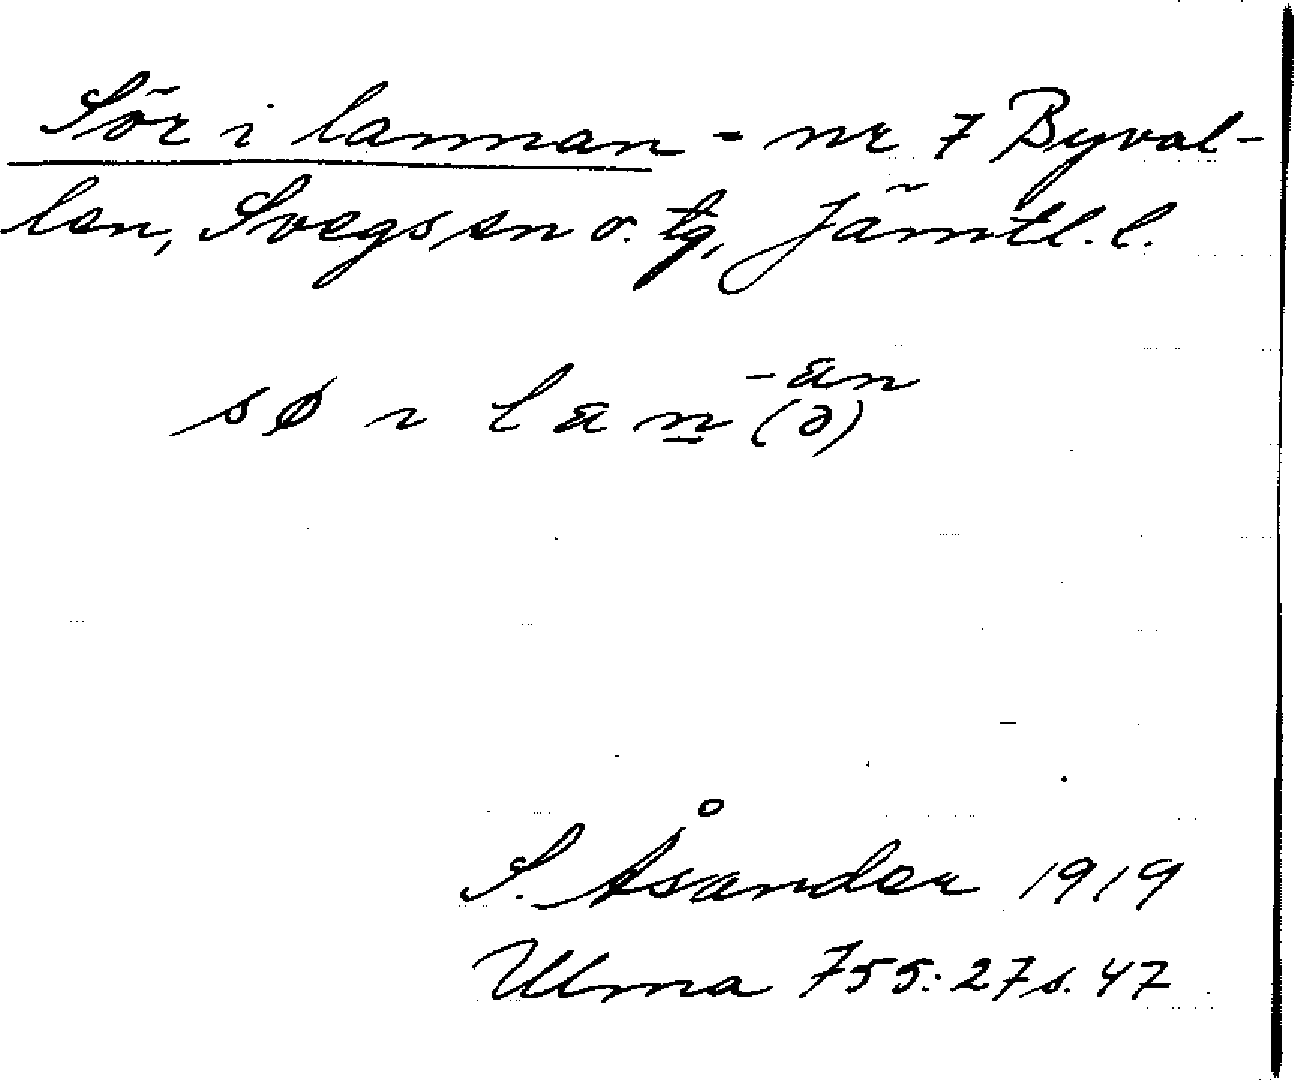 Sör i lannan - nr 7 Byval-
len, Svegs sn o. tg, Jämtl. l.
sø ı lan -an
(ə)
S. Åsander 1919
Ulma 755:27 s. 47